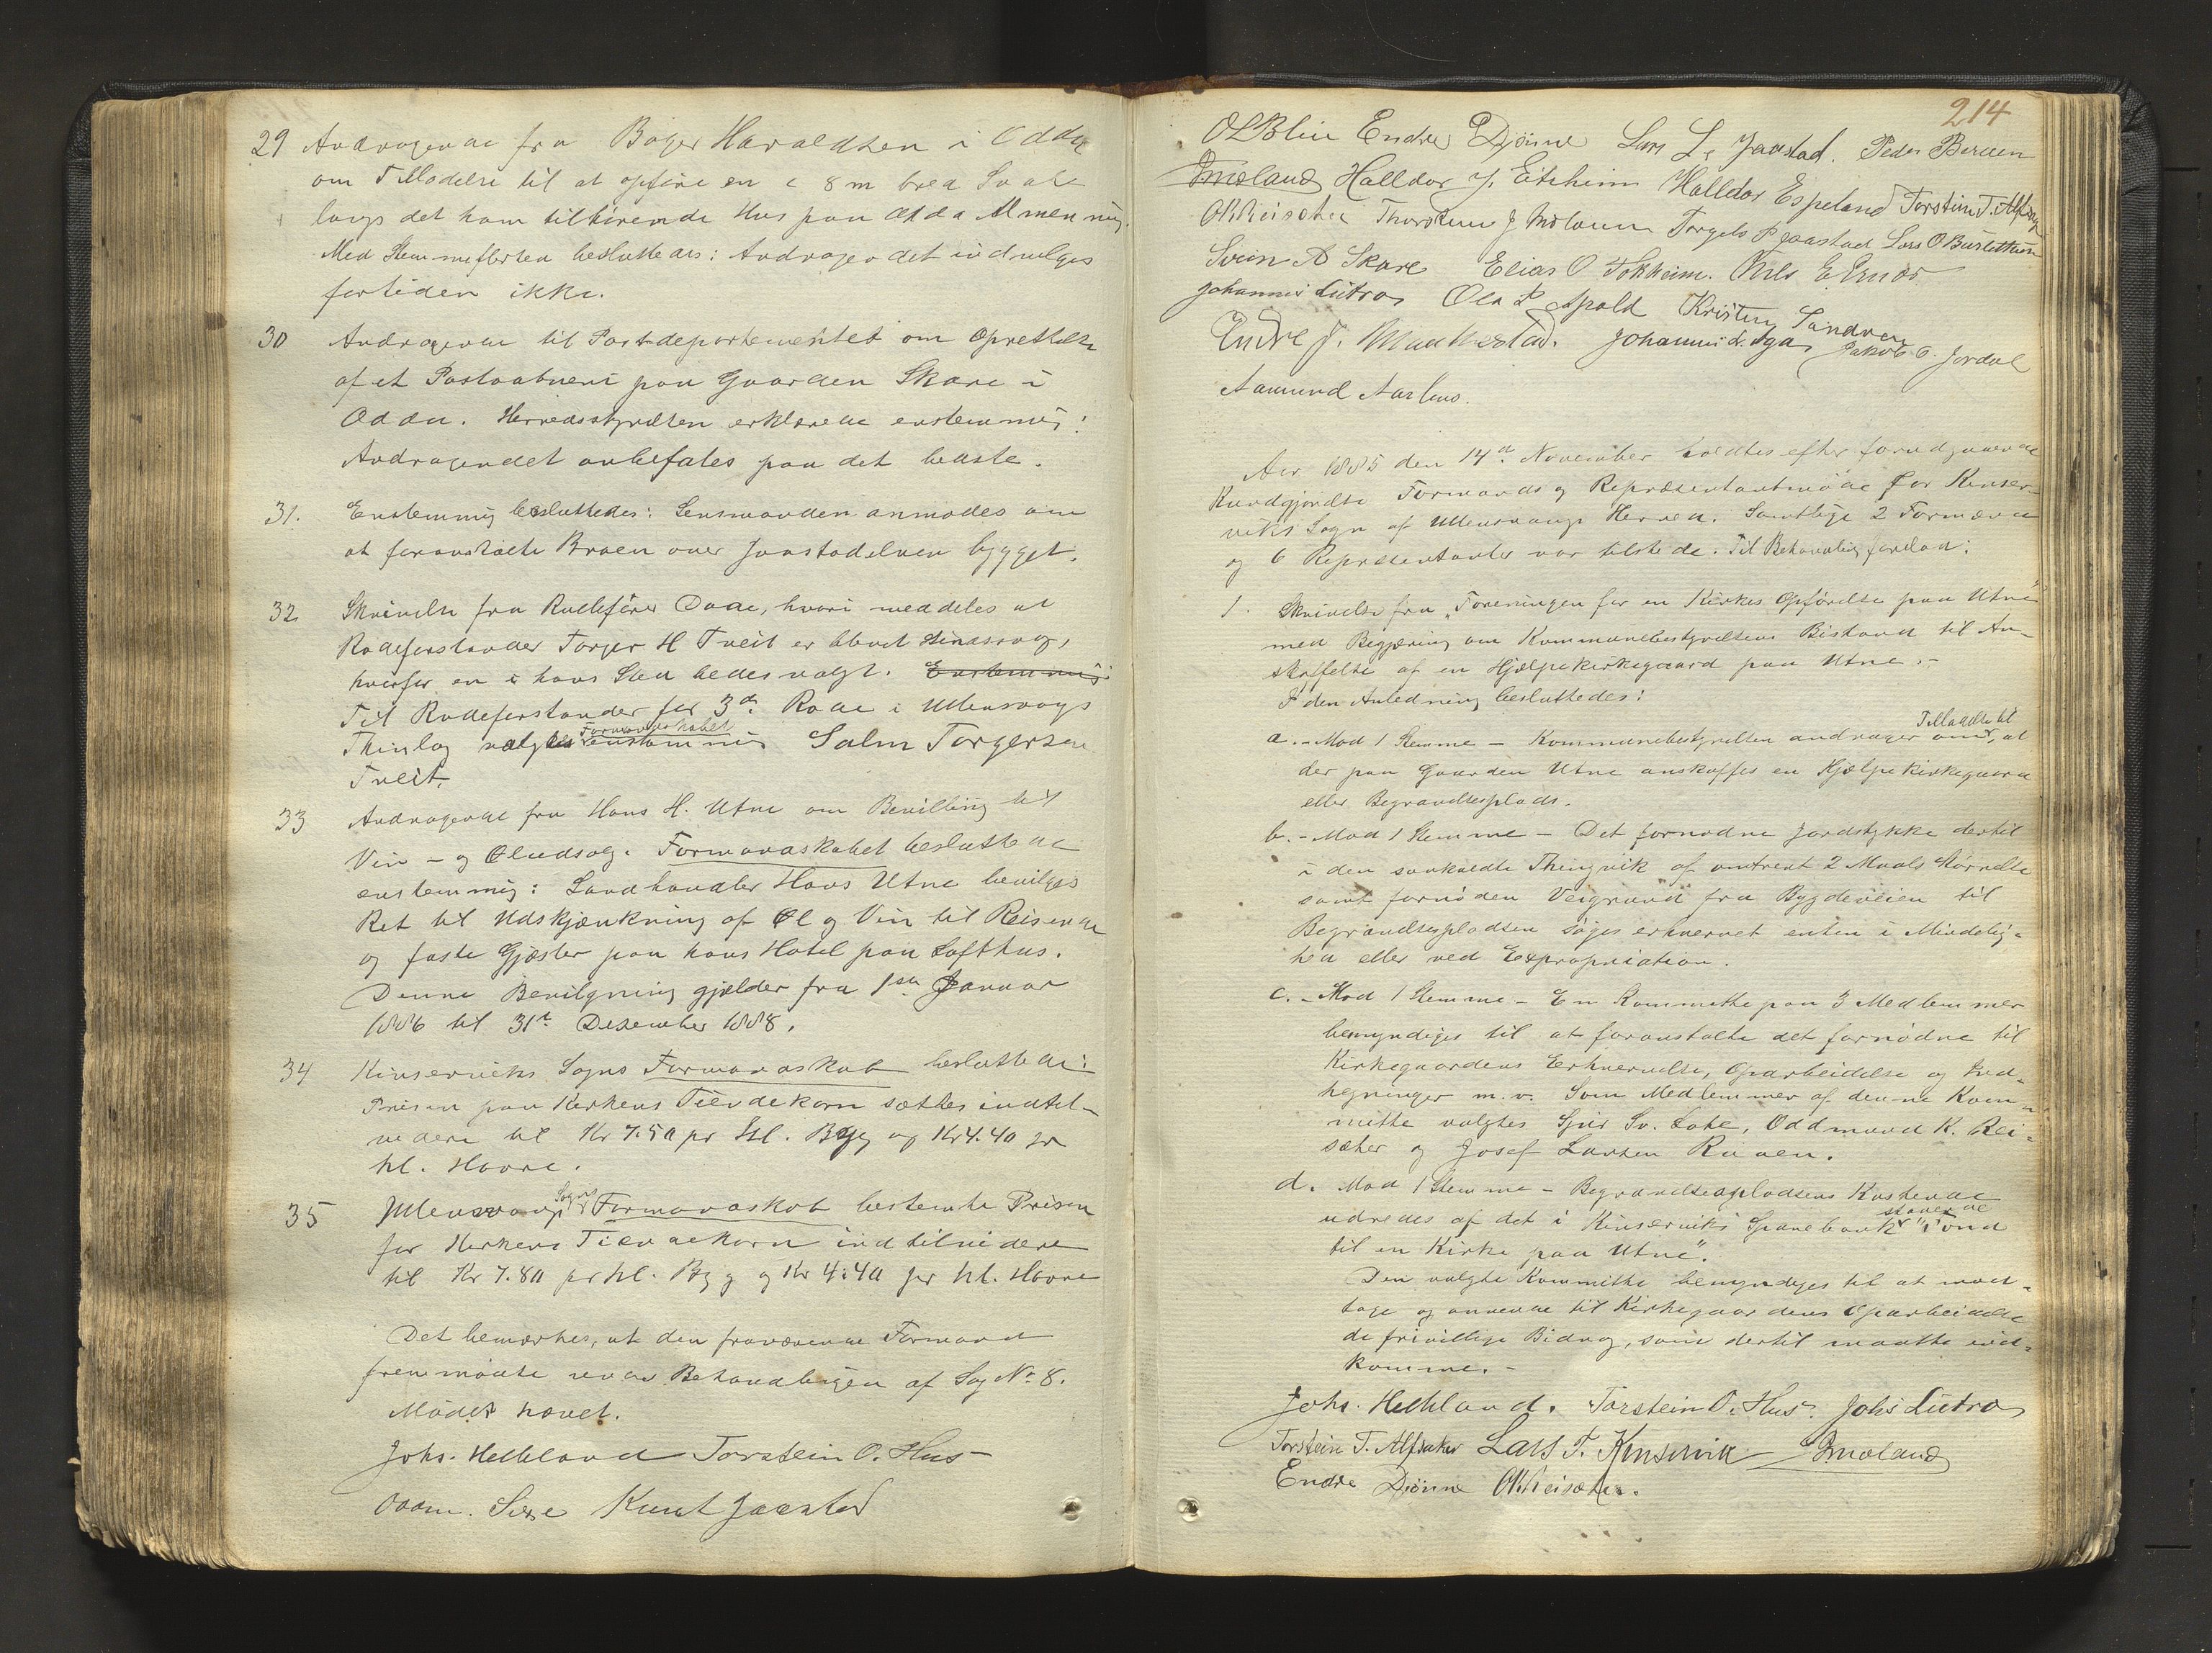 29 Andragende fra Bager Haraldsen i Odda
om Tilladelse til at opføre en c 8 m bred Svale
langs det ham tilhørende Hus paa Odda Almenning.
Med Stemmeflerhed besluttedes: Andragendet indvilges
fortiden ikke.
30 Andragende til Postdepartementet om Oprettelse
af et Postaabneri paa Gaarden Skare i
Odda. Herredsstyrelsen erklærede enstemmig:
Andragendet anbefales paa det bedste.
31. Enstemmig besluttedes: Lensmanden anmodes om
at foranstalte Broen over Jaastadelven bygget.
32 Skrivelse fra Rullefører Daae, hvori meddeles at
Rodeforstander Torger H Tveit er blevet
hvorfor en i hans Sted bedes valgt. Enstemmig
Til Rodeforstander for 3die Rode i Ullensvangs
Formandskabet
Thinglag valgtes enstemmig Salm. Torgersen
Tveit.
33 Andragende fra Hans H. Utne om Bevilling til
Vin- og Øludsalg. Formandskabet besluttede
enstemmig: Landhandler Hans Utne bevilges
Ret til Udskjænkning af Øl og Vin til Reisende
og faste Gjæster paa hans Hotel paa Lofthus.
Denne Bevilgning gjælder fra 1ste Januar
1886 til 31te Desember 1888.
34 Kinserviks Sogns Formandskab besluttede:
Prisen paa Kirkens Tiendekorn sættes indtil-
videre til Kr 7.50 pr hl. Byg og Kr 4.40 pr
hl. Havre.
35 Ullensvangs Sogns Formandskab bestemte Prisen
for Kirkens Tiendekorn indtilvidere
til Kr 7.80 pr hl. Byg og Kr 4.40 per hl. Havre
Det bemærkes, at den fraværende Formand
fremmødte under Behandlingen af Sag No 8.
Mødet hævet.
Johs. Helleland Torstein O. Hus
Oddm. Sexe Knut Jaastad
214
O L Blie Endre Djønne Lars L. Jaastad. Peder Berven
Halldor J. Eitrheim Halldor Espeland Torstein T. Alfsaker
O K Reisæter Thorstein J Torgels P Jaastad Lars O
Svein A Skare Elias O Tokheim. Nils E. Ernes
Johannes Lutro Ola P Apold Kristen Sandven
Endre J. Maakestad. Johannes L Aga Jakob O. Jordal
Aamund Aarhus.
Aar 1885 den 14de November holdtes efter forudgaaende
Kundgjørelse Formands og Repræsentantmøde for Kinser-
viks Sogn af Ullensvangs Herred. Samtlige 2 Formænd
og 6 Repræsentanter var tilstede. Til Behandling forelaa:
1. Skrivelse fra "Foreningen for en Kirkes Opførelse paa Utne"
med Begjæring om Kommunebestyrelsens Bistand til An-
skaffelse af en Hjælpekirkegaard paa Utne.-
I den Anledning besluttedes:
a. - Mod 1 Stemme - Kommunebestyrelsen andrager om Tilladelse til, at
der paa Gaarden Utne anskaffes en Hjælpekirkegaard
eller Begravelsesplads.
b. - Mod 1 Stemme - Det fornødne Jordstykke dertil
i den saakaldte Thingvik af omtrent 2 Maals Størrelse
samt fornøden Veigrund fra Bygdeveien til
Begravelsespladsen søges erhvervet enten i Mindelig-
hed eller ved Expropriation.
c. - Mod 1 Stemme - En Kommitte paa 3 Medlemmer
bemyndiges til at foranstalte det fornødne til
Kirkegaardens Erhvervelse, Oparbeidelse og Ind-
hegninger m.v. Som Medlemmer af denne Kom-
mitte valgtes Sjur Sv. Lote, Oddmund K. Rei-
sæter og Josef Larsen
d. Mod 1 Stemme - Begravelsespladsens Kostende
udredes af det i Kinserviks Sparebank staaende "Fond
til en Kirke paa Utne".
Den valgte Kommitte bemyndiges til at mod-
tage og anvende til Kirkegaardens Oparbeidelse
de frivillige Bidrag, som dertil maatte ind-
komme.-
Johs. Helleland. Torstein O. Hus. Johs Lutro
Torstein T. Alfsaker Lars T. Kinservik
Endre Djønne O K Reisæter.